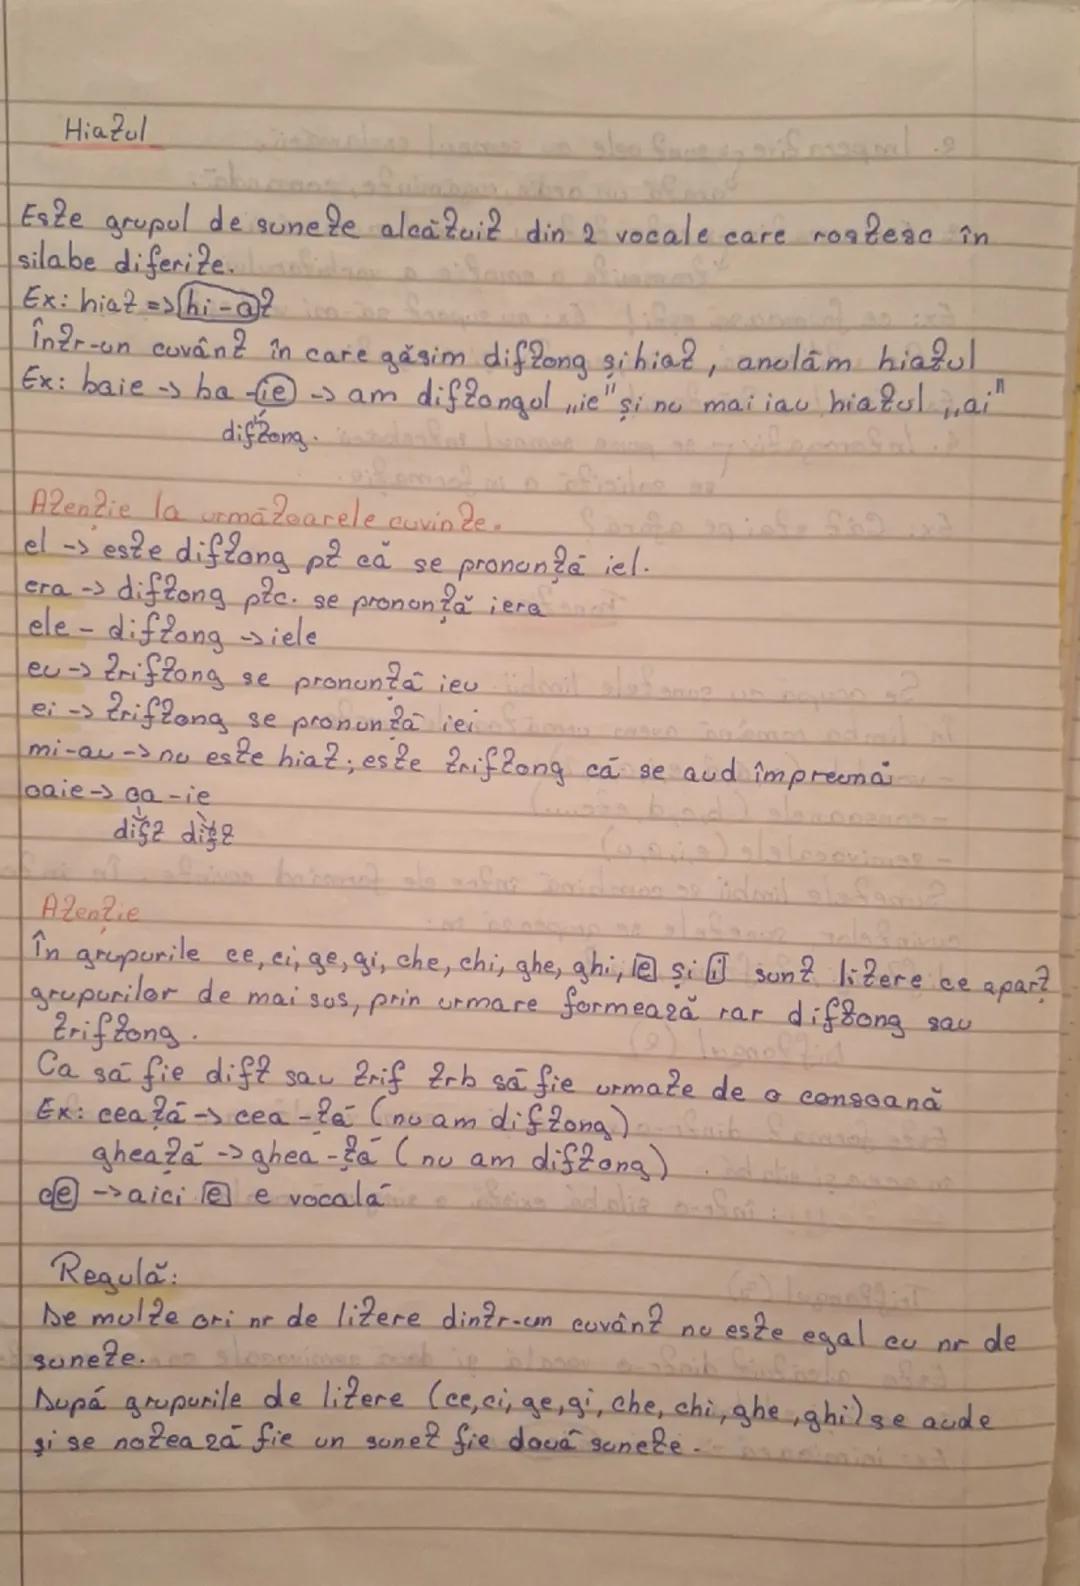 Hiatul
Este grupul de sunete alcătuit din 2 vocale care rostesc în
silabe diferite.
Ex: hiat => hi-at
Într-un cuvânt în care găsim diftong și hiat, anulăm hiatul
Ex: baie -> ba-ie -> am diftongul „ie" și nu mai iau hiatul „ai"
diftong.
Atenție la următoarele cuvinte.
el -> este diftong pt că se pronunță iel.
era -> diftong ptc. se pronunță iera
ele - diftong -> iele
eu -> triftong se pronunță ieu
ei -> triftong se pronunță iei
mi-au -> nu este hiat; este triftong că se aud împreună
oaie -> oa-ie
dift dift
Atenție
În grupurile ce, ci, ge, gi, che, chi, ghe, ghi, e și i sunt litere ce apart
grupurilor de mai sus, prin urmare formează rar diftong sau
triftong.
Ca să fie dift sau trif trb să fie urmate de o consoană
Ex: ceață -> cea-ță (nu am diftong)
gheață -> ghea-ță (nu am diftong)
ce -> aici e e vocală
Regulă:
De multe ori nr de litere dintr-un cuvânt nu este egal cu nr de
sunete.
După grupurile de litere (ce, ci, ge, gi, che, chi, ghe, ghi) se aude
și se notează fie un sunet fie două sunete.